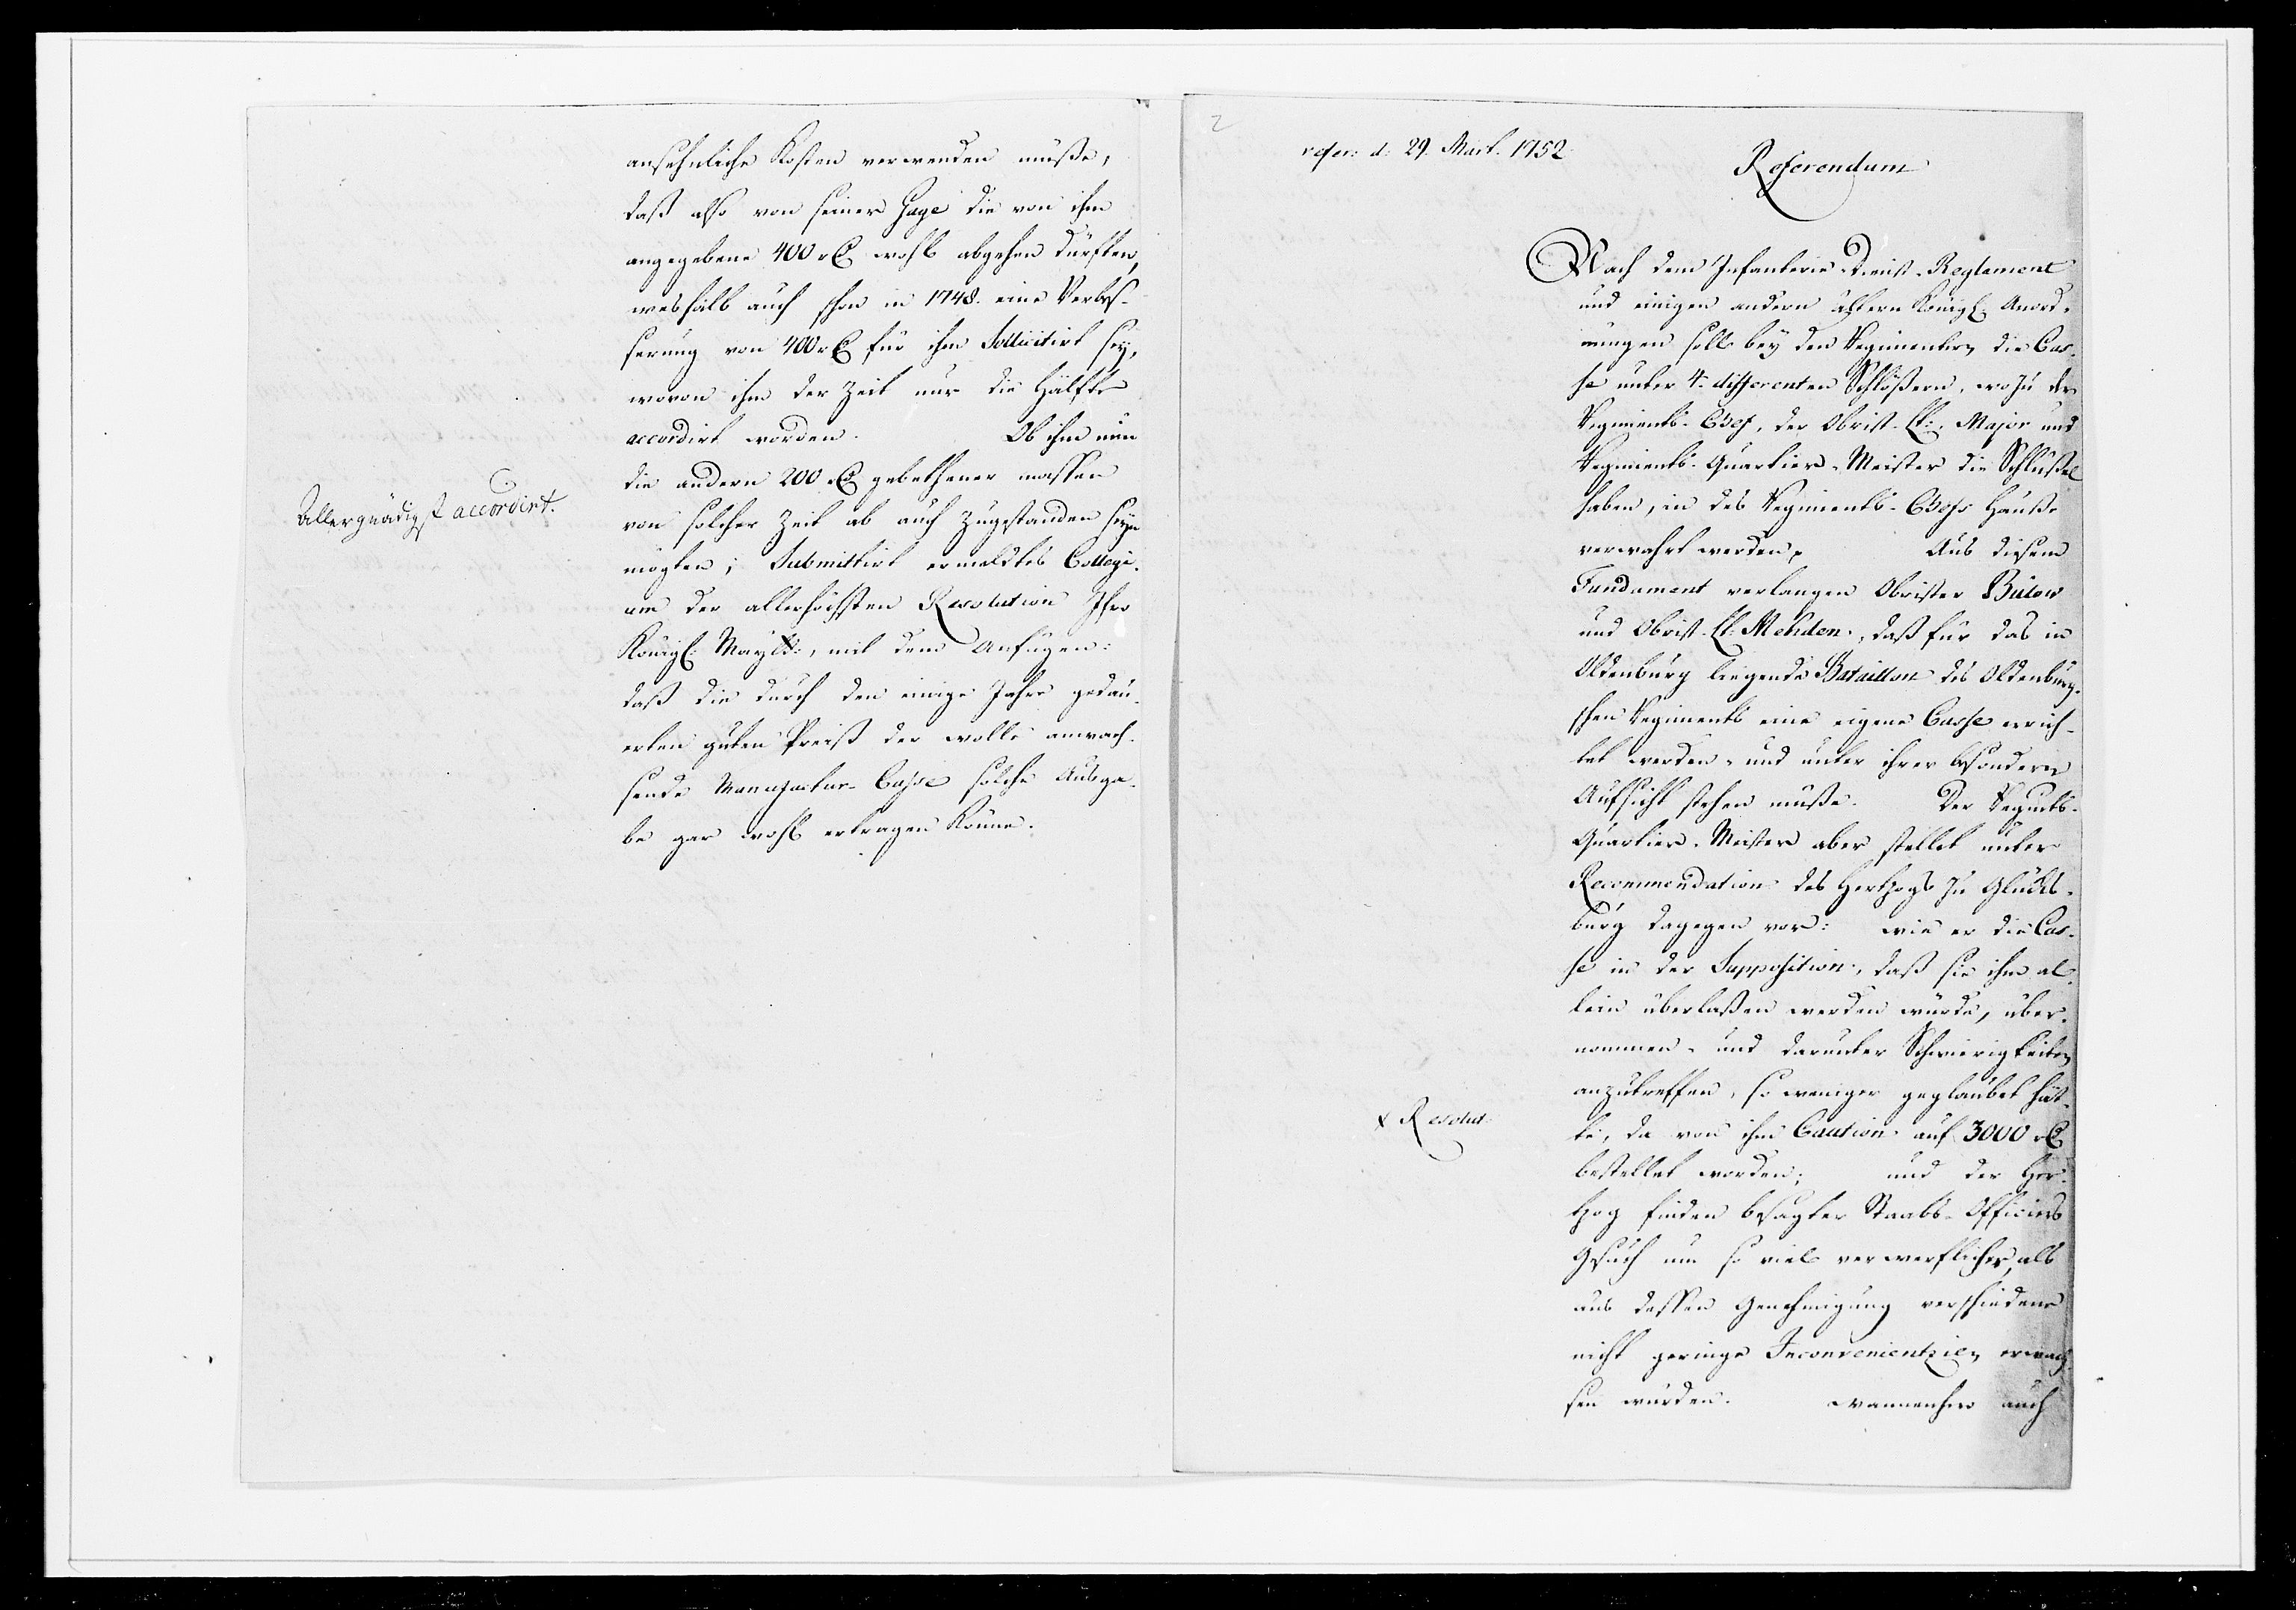 ansehnliche Kosten verwenden müße,
daß also von seiner Gage die von ihm
angegebene 400 r℔ wohl abgehen dürften,
weshalb auch schon in 1748. eine Verbes-
serung von 400 r℔ für ihm Sollicitirt sey,
wovon ihm der Zeit nur die Hälfte
accordirt worden. Ob ihm nun
die andern 200 r℔ gebethener massen
von solcher Zeit ab auch zugestanden seyn
mögten; Submittirt ermeldtes Collegi-
um der allerhöchsten Resolution Ihro
Königl: Maytt:, mit dem Anfügen:
daß die durch den einige Jahre gedau-
erten guten Preiß der Wolle anwach-
sende Manufactur-Casse solche Ausga-
be gar wohl ertragen könne.
Allergnädigst accordirt.
2
refer: d: 29. Mart. 1752
Referendum
Nach dem Infanterie-Dienst-Reglement
und einigen andern ältern Königl. Anord-
nungen soll bey den Regimentern die Cas-
se unter 4. differenten Schlößern, wozu der
Regiments-Chef, der Obrist-Lt:, Major und
Regiments-Quartier-Meister die Schlüßel
haben, in des Regiments-Chefs Hause
verwahrt werden. Aus diesem
Fundament verlangen Obrister Bülow
und Obrist-Lt: Mehden, daß für das in
Oldenburg liegende Bataillon des Oldenburg-
schen Regiments eine eigene Casse errich-
tet werden- und unter ihrer besondern
Aufsicht stehen müße. Der Regmts-
Quartier-Meister aber stellet unter
Recommendation des Hertzogs zu Glücks-
burg dagegen vor: wie er die Cas-
se in der Supposition, daß sie ihm al-
lein überlaßen werden würde, über-
nommen- und darunter Schwierigkeiten
anzutreffen, so weniger geglaubet hät-
te, da von ihm Caution auf 3000 r℔
bestellet worden; und der Her-
tzog finden besagter Staabs-Officiers
Gesuch um so viel verwerflicher, als
aus dessen Genehmigung verschiedene
nicht geringe Inconvenientzien erwach-
sen würden. Wannenhero auch
x Resolut: